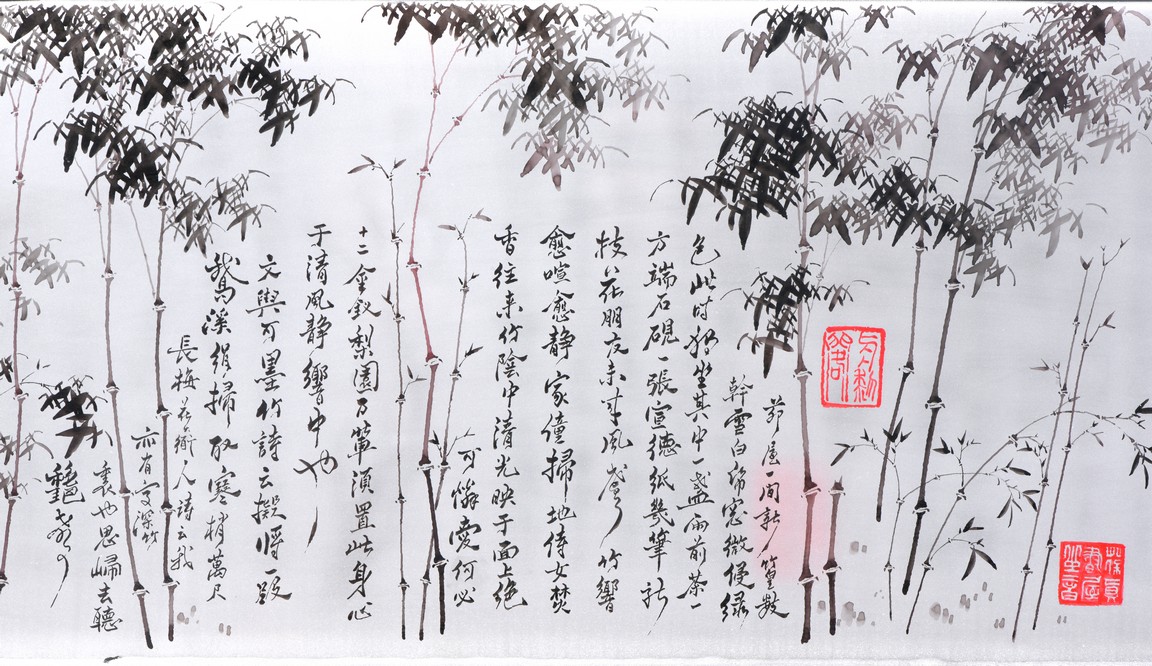 茆屋一間新篁數
幹雪白帋窓微侵綠
色此時獨坐其中一盞雨前茶一
方端石硯一張宣德紙幾筆折
枝花朋友来至風聲竹響
愈喧愈静家僮掃地侍女焚
香往来竹陰中清光映于面上絶
可憐愛何必
十二金釵梨園乃輩須置此身心
于清風静響中也
文與可墨竹詩云擬將一段
鵞溪絹掃取寒梢萬尺
長梅花衜人詩云我
亦有亭深竹
裏也思歸去聽
龝聲